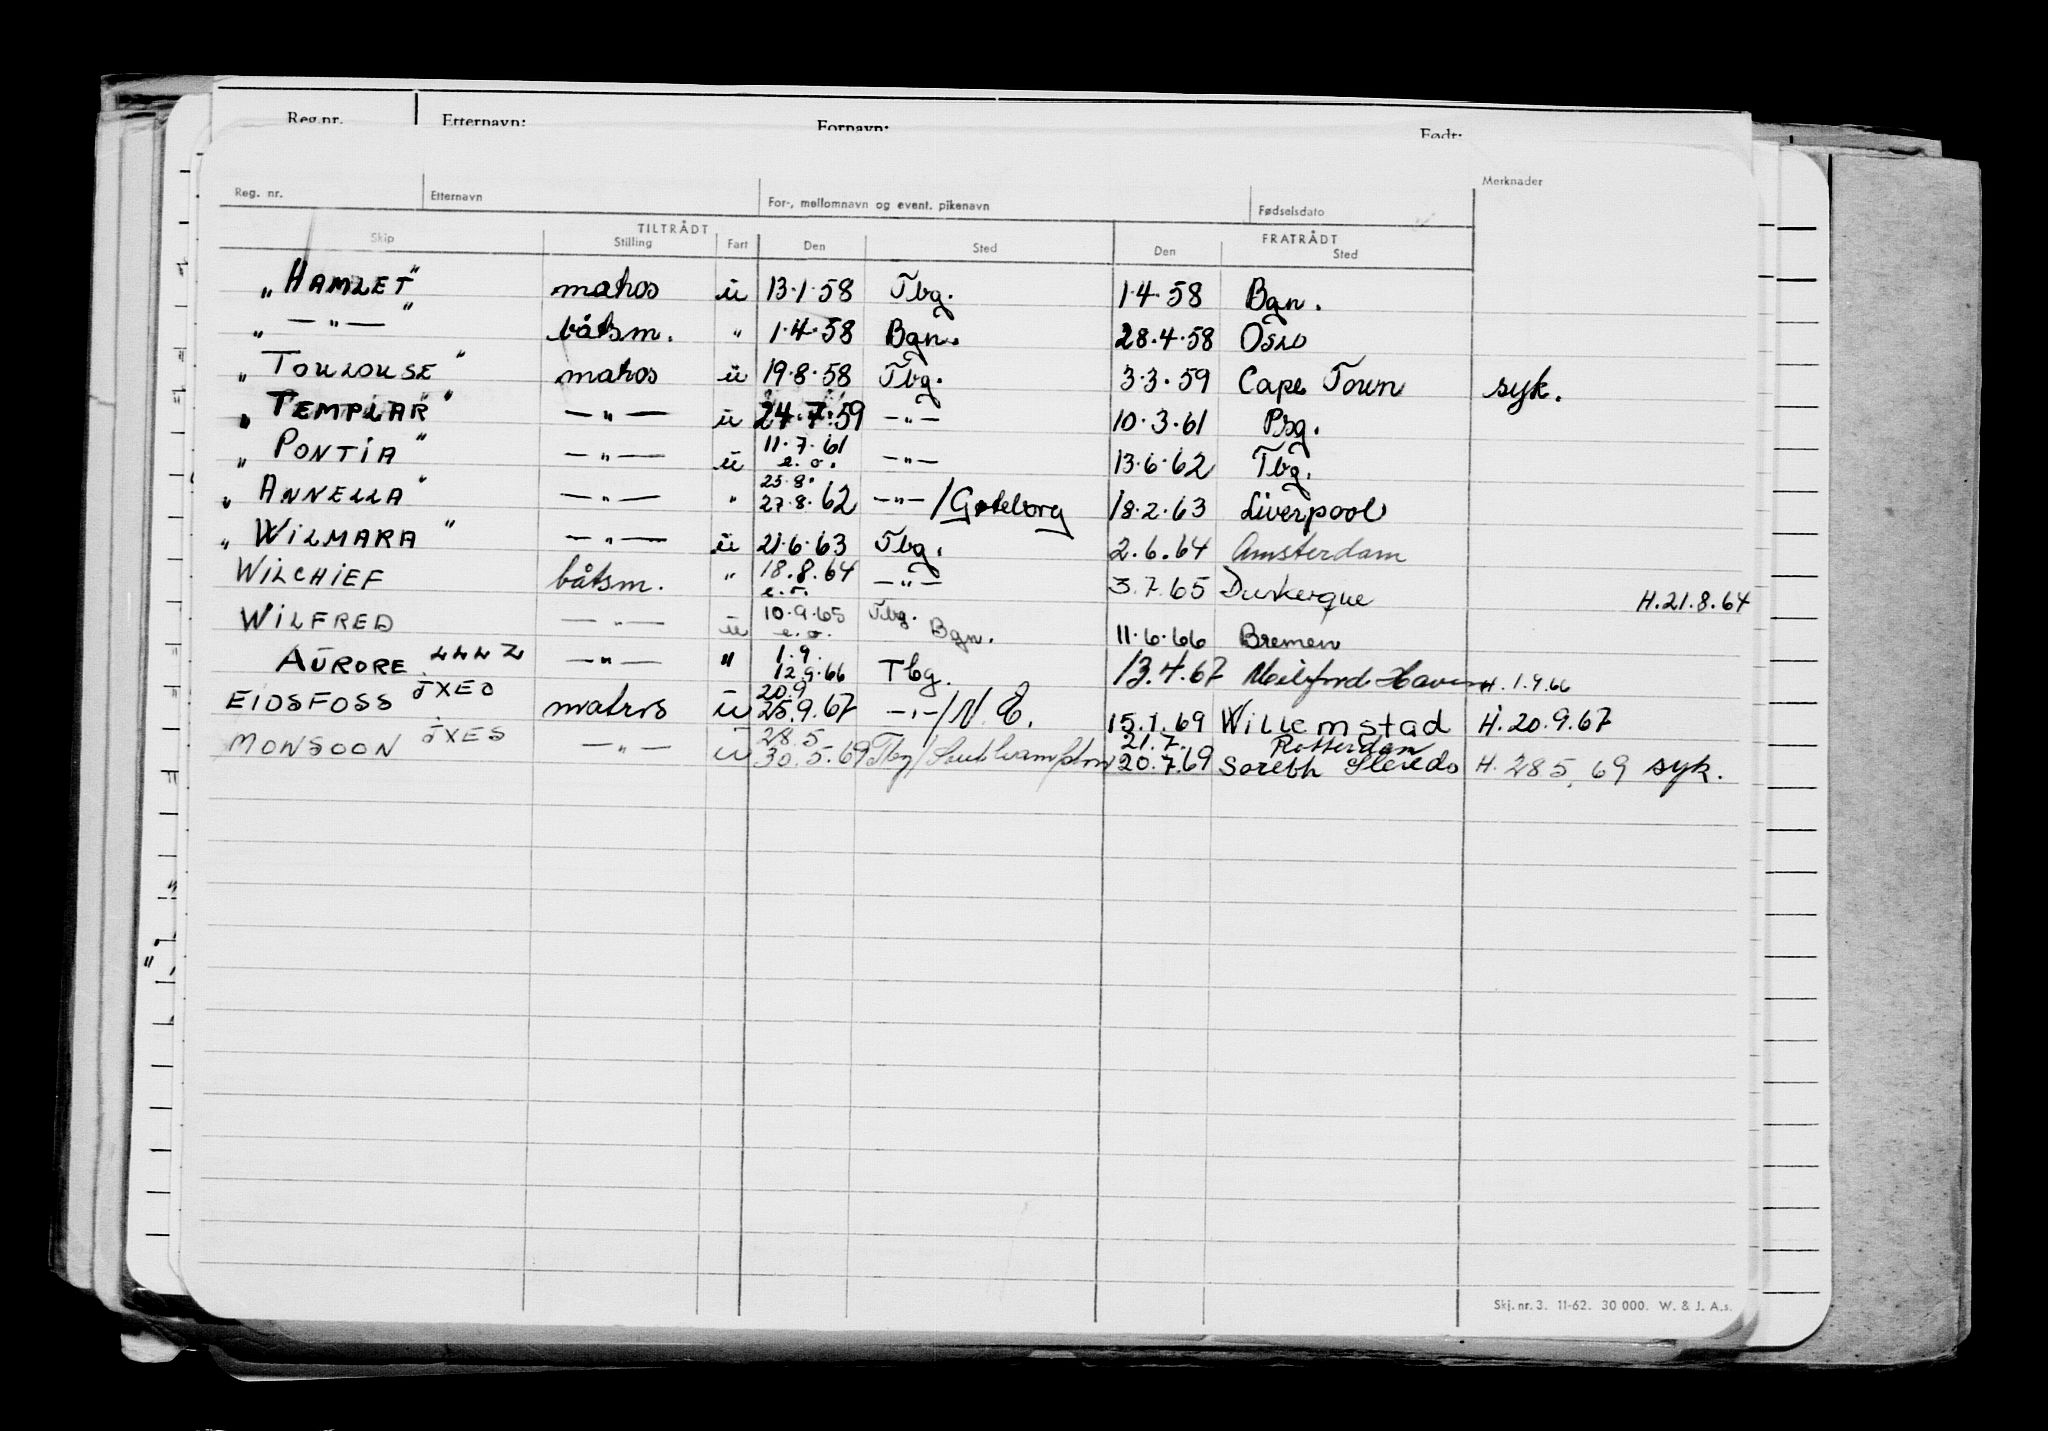 Reg.nr. Etternavn: Fornavn: Født:
Reg. nr. Etternavn For-, mellomnavn og event. pikenavn Fødselsdato Merknader
TILTRÅDT FRATRÅDT
Skip Stilling Fart Den Sted Den Sted
„HAMLET" matros ü 13.1.58 Tbg. 1.4.58 Bgn.
„ — " — " båtsm. " 1.4.58 Bgn. 28.4.58 Oslo
„TOULOUSE" matros ü 19.8.58 Tbg. 3.3.59 Cape Town syk.
„TEMPLAR" — " — ü 24.7.59 — " — 10.3.61 Psg.
„PONTIA" — " — ü 11.7.61 e.o. — " — 13.6.62 Tbg.
„ANNELLA" — " — " 23.8. 27.8.62 — " — / Gøteborg 18.2.63 Liverpool
„WILMARA" — " — ü 21.6.63 Tbg. 2.6.64 Amsterdam
WILCHIEF båtsm. " 18.8.64 e.o. — " — 3.7.65 Dunkerque H.21.8.64
WILFRED — " — ü 10.9.65 e.o. Tbg. Bgn. 11.6.66 Bremen
AURORE LLLZ — " — " 1.9. 12.9.66 Tbg. 13.4.67 Milford Haven H. 1.9.66
EIDSFOSS JXEO matros ü 20.9 25.9.67 — " — / N.E. 15.1.69 Willemstad H. 20.9.67
MONSOON JXES — " — ü 28.5 30.5.69 Tbg / Southampton 21.7. 20.7.69 Rotterdam H. 28.5.69 syk.
Skj. nr. 3. 11-62. 30 000. W. & J. A.s.